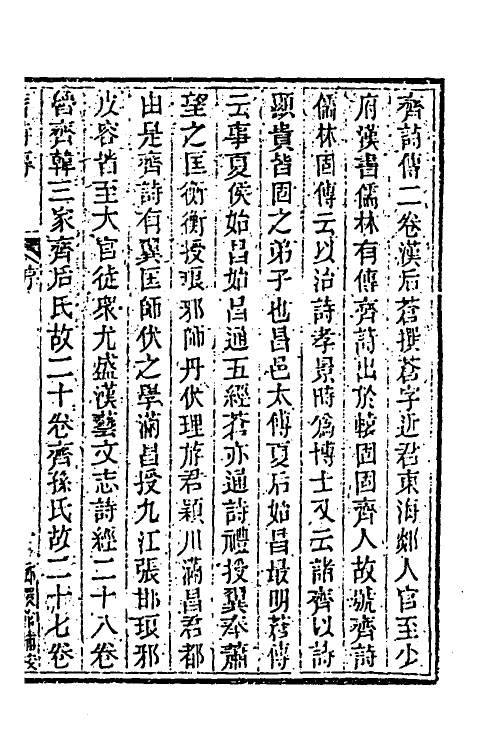 齊詩傳二卷漢后蒼撰蒼字近君東海郯人官至少
府漢書儒林有傳齊詩出於轅固固齊人故號齊詩
儒林固傳云以治詩孝景時為博士又云諸齊以詩
顯貴皆固之弟子也昌邑太傅夏后始昌最明蒼傳
云事夏侯始昌始昌通五經蒼亦通詩禮授翼奉蕭
望之匡衡衡授琅邪師丹伏理斿君潁川滿昌君都
由是齊詩有翼匡師伏之學滿昌授九江張邯琅邪
皮容皆至大官徒眾尤盛漢藝文志詩經二十八卷
魯齊韓三家齊后氏故二十卷齊孫氏故二十七卷
序